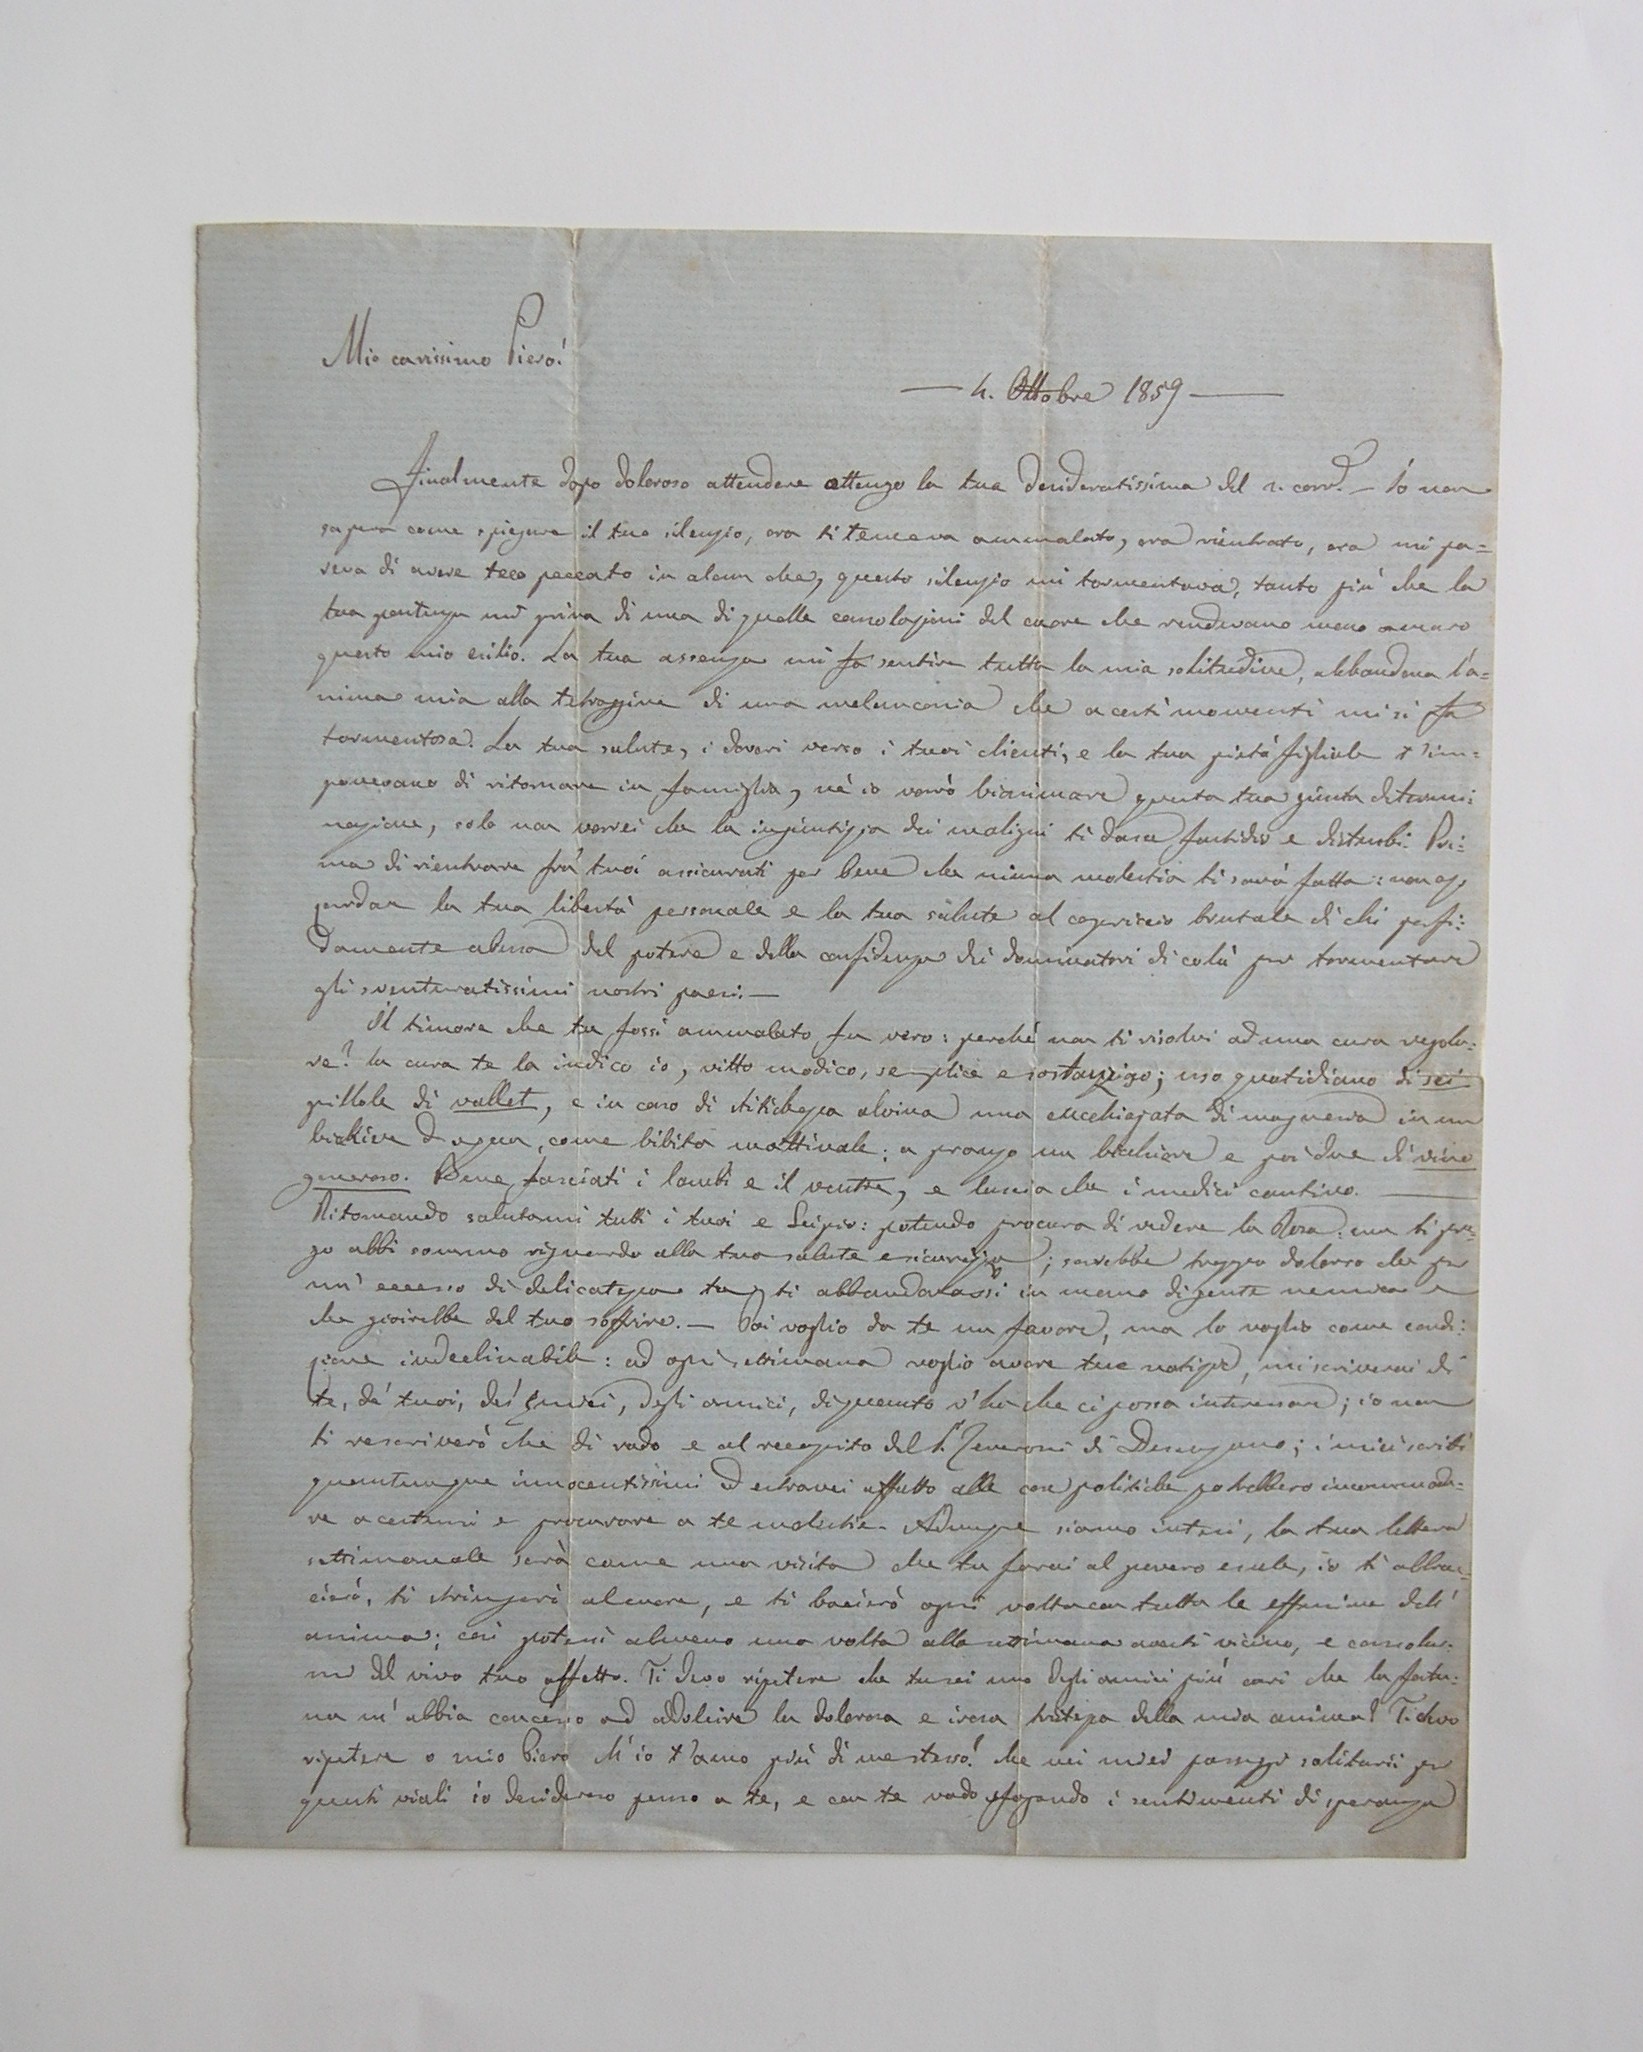 Mio carissimo Piero!
— 4. Ottobre 1859 —
Finalmente dopo doloroso attendere ottengo la tua desideratissima del 2. corr.e — Io non
sapeva come spiegare il tuo silenzio, ora ti temeva ammalato, ora rientrato, ora mi pa=
reva di avere teco peccato in alcun che, questo silenzio mi tormentava, tanto più che la
tua partenza mi priva di una di quelle consolazioni del cuore che rendevano meno amaro
questo mio esilio. La tua assenza mi fa sentire tutta la mia solitudine, abbandona l'a=
nima mia alla tetraggine di una melanconia che a certi momenti mi si fa
tormentosa. La tua salute, i doveri verso i tuoi clienti, e la tua pietà figliale t'im=
ponevano di ritornare in famiglia, nè io vorrò biasimare questa tua giusta determi:
nazione, solo non vorrei che la ingiustizia dei maligni ti dasse fastidio e disturbi. Pri:
ma di rientrare fra' tuoi assicurati per bene che niuna molestia ti sarà fatta: non az=
zardar la tua libertà personale e la tua salute al capriccio brutale di chi perfi:
damente abusa del potere e della confidenza dei dominatori di colà per tormentare
gli sventuratissimi nostri paesi. —
Il timore che tu fossi ammalato fu vero: perché non ti risolvi ad una cura regola:
re? la cura te la indico io, vitto modico, semplice e sostanzioso; uso quotidiano di sei
pillole di vallet, e in caso di stitichezza alvina una cucchiajata di magnesia in un
bichiere d'aqua, come bibita mattinale; a pranzo un bichiere e poi due di vino
generoso. Bene fasciati i lombi e il ventre, e lascia che i medici cantino. —
Ritornando salutami tutti i tuoi e Scipio: potendo procura di vedere la Rosa: ma ti pre=
go abbi sommo riguardo alla tua salute e sicurezza; sarebbe troppo doloroso che per
un' eccesso di delicatezza tu ti abbandonassi in mano di gente nemica e
che gioirebbe del tuo soffrire. — Poi voglio da te un favore, ma lo voglio come condi:
zione indeclinabile: ad ogni settimana voglio avere tue notizie, mi scriverai di
te, de' tuoi, dei miei, degli amici, di quanto v'ha che ci possa interessare; io non
ti rescriverò che di rado e al recapito del S.r Zeveroni di Desenzano; i miei scritti
quantunque innocentissimi ed estranei affatto alle cose politiche potrebbero incommoda=
re a certuni e procurare a te molestie. Adunque siamo intesi, la tua lettera
settimanale sarà come una visita che tu farai al povero esule, io ti abbrac=
cierò, ti stringerò al cuore, e ti bacierò ogni volta con tutta le effusione dell'
anima; così potessi almeno una volta alla settimana averti vicino, e consolar:
mi del vivo tuo affetto. Ti devo ripetere che tu sei uno degli amici più cari che la fortu:
na m'abbia concesso ad addolcire la dolorosa e irosa tristezza della mia anima? Ti devo
ripetere o mio Piero ch'io t'amo più di me stesso? che nei miei passeggi solitarii per
questi viali io desideroso penso a te, e con te vado sfogando i sentimenti di speranza